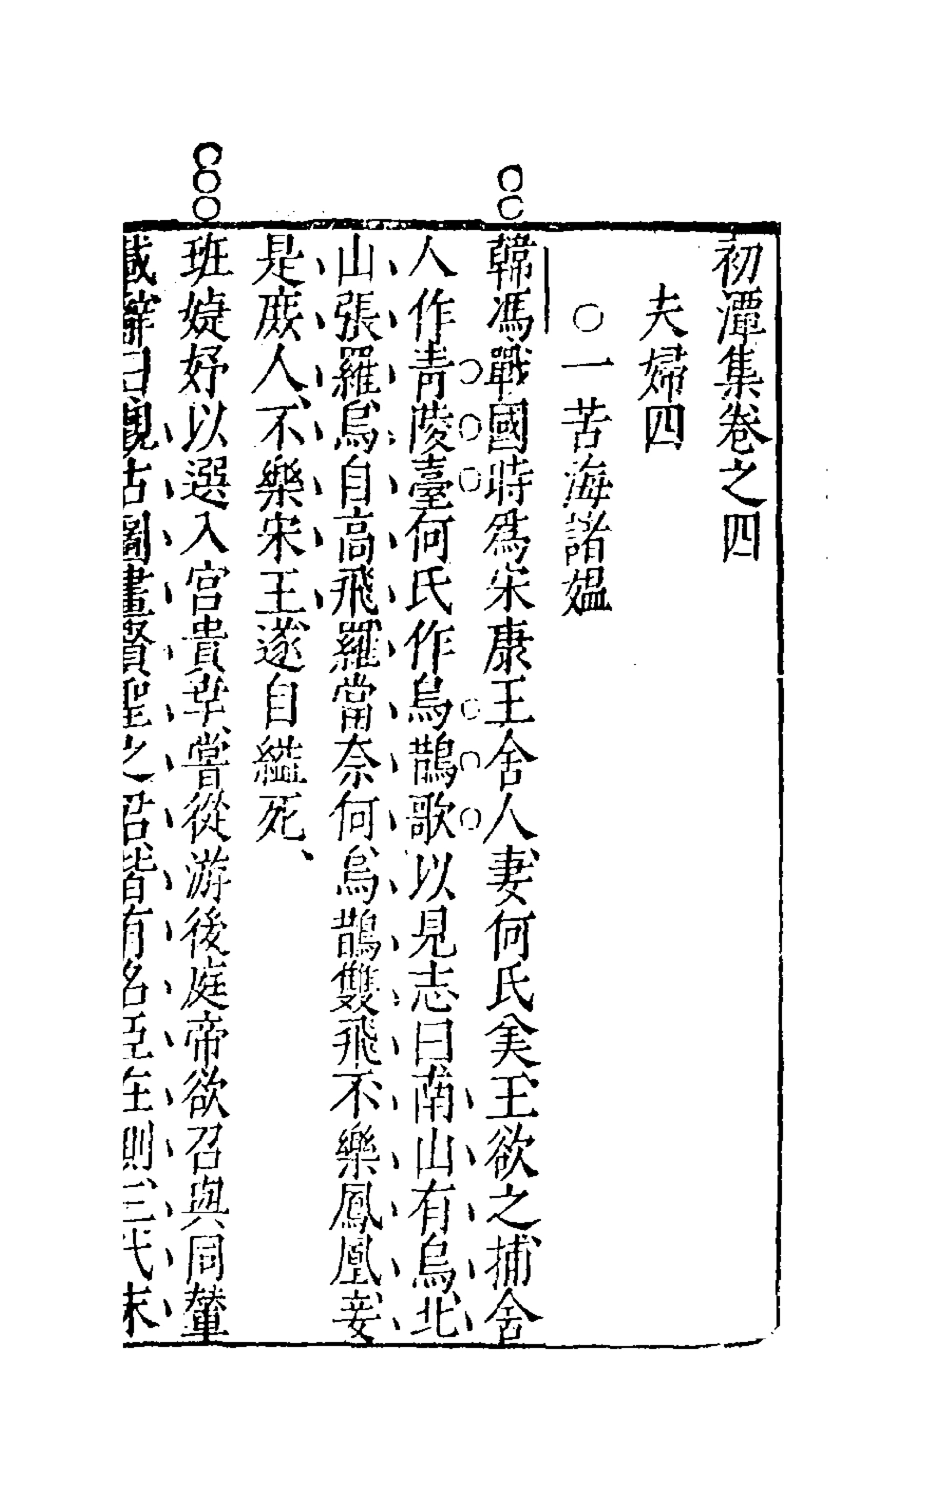 初潭集卷之四
夫婦四
○一苦海諸媼
韓馮戰國時爲宋康王舍人妻何氏美王欲之捕舍
人作青陵臺何氏作烏鵲歌以見志曰南山有烏北
山張羅烏自高飛羅當奈何烏鵲雙飛不樂鳳凰妾
是庶人不樂宋王遂自縊死
班婕妤以選入宮貴幸嘗從游後庭帝欲召與同輦
載辭曰觀古圖畫賢聖之君皆有名臣在側三代末